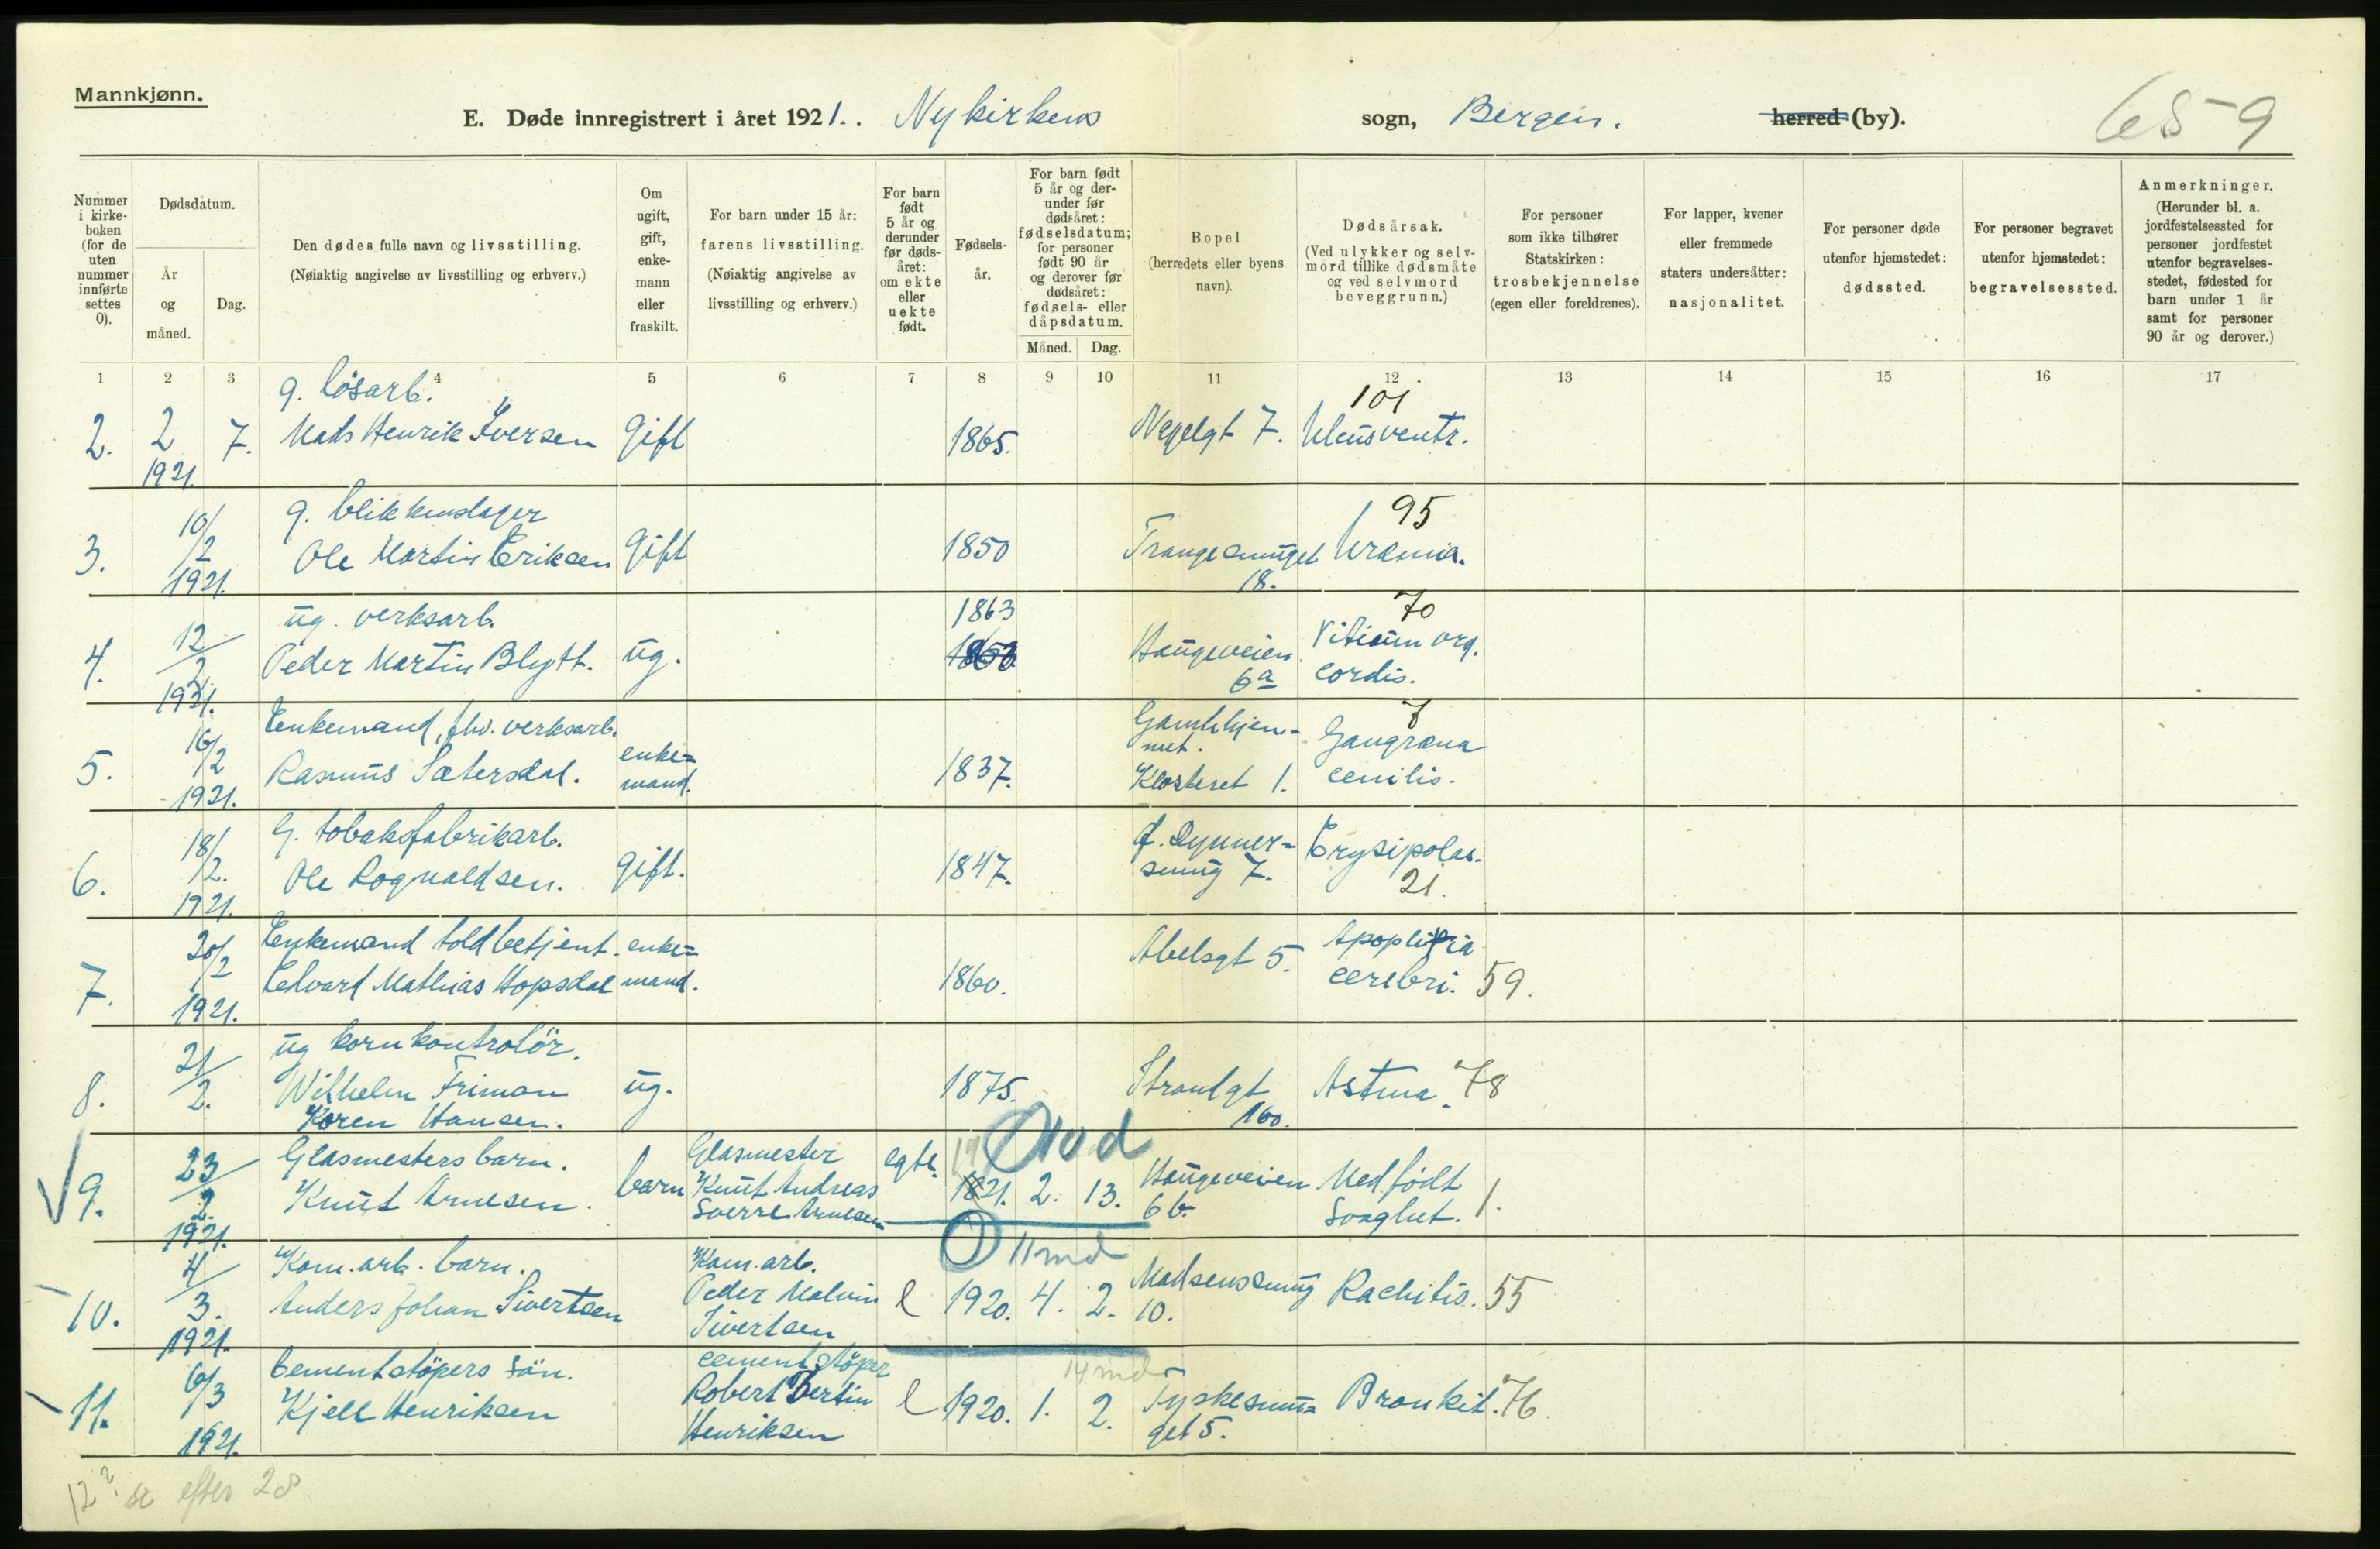 Mannkjønn.
E. Døde innregistrert i året 1921. . Nykirkens sogn, Bergen. herred (by).
659
Nummer i kirke-boken (for de uten nummer innførte settes 0).
Dødsdatum.
År og måned.
Dag.
Den dødes fulle navn og livsstilling.
(Nøiaktig angivelse av livsstilling og erhverv.)
Om ugift, gift, enke-mann eller fraskilt.
For barn under 15 år:
farens livsstilling.
(Nøiaktig angivelse av livsstilling og erhverv.)
For barn født 5 år og derunder før døds-året: om ekte eller uekte født.
Fødsels-år.
For barn født 5 år og der-under før dødsåret: fødselsdatum; for personer født 90 år og derover før dødsåret: fødsels- eller dåpsdatum.
Måned. Dag.
Bopel
(herredets eller byens navn).
Dødsårsak.
(Ved ulykker og selv-mord tillike dødsmåte og ved selvmord beveggrunn.)
For personer som ikke tilhører Statskirken:
trosbekjennelse
(egen eller foreldrenes).
For lapper, kvener eller fremmede staters undersåtter:
nasjonalitet.
For personer døde utenfor hjemstedet:
dødssted.
For personer begravet utenfor hjemstedet:
begravelsessted.
Anmerkninger.
(Herunder bl. a. jordfestelsessted for personer jordfestet utenfor begravelses-stedet, fødested for barn under 1 år samt for personer 90 år og derover.)
1 2 3 4 5 6 7 8 9 10 11 12 13 14 15 16 17
g. løsarb. 101
2. 2 7. Mads Henrik Iversen Gift 1865. Negelgt 7. Ulcus ventr.
1921.
g. blikkenslager 95
3. 10/2 Ole Martin Eriksen Gift 1850 Trangesmuget Uræmia.
1921. 18.
ug. verksarb. 1863 70
4. 12/2 Peder Martin Blytt. ug. 1853 Haugeveien Vitium org.
1921. 6a cordis.
Enkemand, fhv. verksarb. Gamlehjem- 7
5. 16/2 Rasmus Sætersdal. enke= 1837. met. Gangræna
1921. mand. Klosteret 1. cenilis.
G. tobaksfabrikarb.
6. 18/2. Ole Rognaldsen. gift. 1847. smug 7. Erysipelas.
1921. 21.
7. 20/2 Enkemand toldbetjent. enke= Abelsgt 5. Apoplexia
1921. Edvard Mathias Hopsdal mand. 1860. cerebri. 59.
ug kornkontrolör.
8. 21/2. Wilhelm Friman ug. 1875. Strandgt Astma. 78
Koren Hansen. 160.
Glasmesters barn. Glasmester egte. 19 10 d
9. 23/2. Knut Arnesen. barn Knut Andreas 1821. 2. 13. Haugeveien Medfödt
1921. Sverre Arnesen 6b. svaghet. 1.
Kom. arb. barn. Kom. arb. 0 11 md
10. 4/3. Anders Johan Sivertsen Peder Malvin e 1920. 4. 2. Madsenssmug Rachitis. 55
1921. Sivertsen 10.
Cementstöpers sön. cementstöper 14 md
11. 6/3 Kjell Henriksen Robert Bertin e 1920. 1. 2. Tyskesmu= Bronkit. 76.
1921. Henriksen get 5.
12? se efter 28